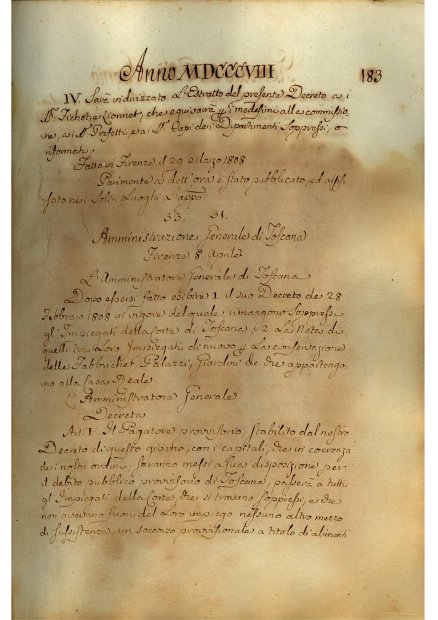 Anno MDCCCVIII 183
IV. Sarà indirizzato L'Estratto del presente Decreto a i
che equivarrà pr i medesimi alla commissio
ne, a i Sri. Prefetti e a i Sri. Capi dei Dipartimenti Soppressi, o
riformati.
Fatto in Firenze il 29 Marzo 1808
Parimente a dell'ora è stato pubblicato, ed affis
sato nei soliti Luoghi L'appo
33. 31.
Amministrazione Generale di Toscana
Firenze 8. Aprile
L'Amministratore Generale di Toscana
Dopo essersi fatto esibire 1. il suo Decreto de 28
Febbraio 1808 in vigore del quale rimangono Soppressi
gl'Impiegati della Corte di Toscana, 2. La Nota di
quelli tra Loro Impiegati di nuovo pr La conservazione
delle Fabbriche, Palazzi, Giardini &c. che appartengo,
no alla Casa Reale.
L'Amministratore Generale
Decreta
Art. I. Il Pagatore provvisorio stabilito dal nostro
Decreto di questo giorno, con i capitali, che in coerenza
dei nostri ordini, saranno messi a sua disposizione per
il debito pubblico provvisorio di Toscana, pagherà a tutti
gl'Impiegati della Corte, che si trovano soppressi, e che
non avevano fuori del Loro impiego nessuno altro mezzo
di sussistenza, un soccorso provvisionale a titolo di alimenti